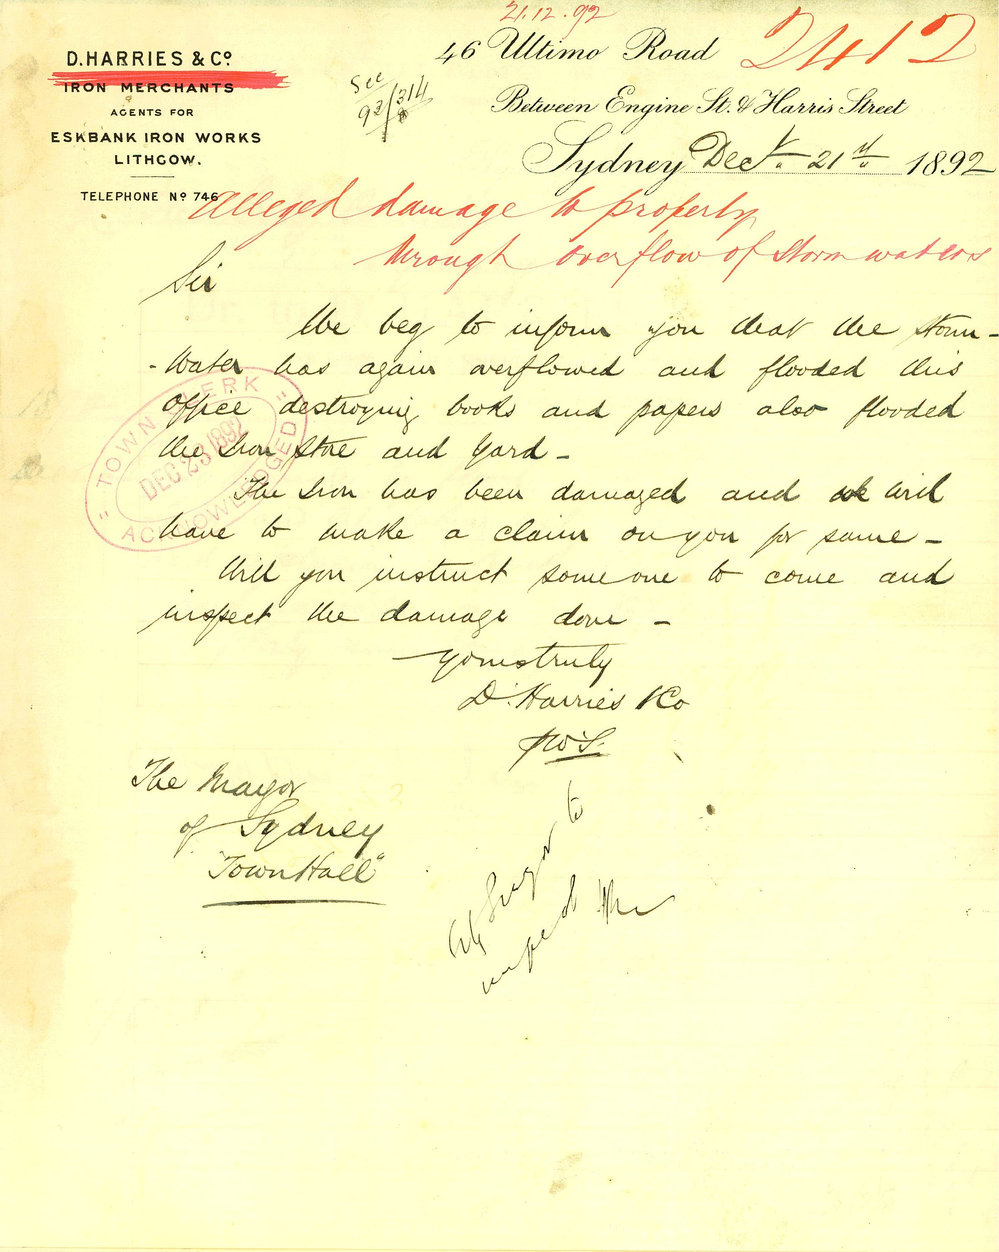 21.12.92
2412
D. HARRIES & Co.
IRON MERCHANTS
AGENTS FOR
ESKBANK IRON WORKS
LITHGOW.
TELEPHONE No 746
See
93/314
46 Ultimo Road
Between Engine St. & Harris Street
Sydney Decr. 21st 1892
Alleged damage to property
through overflow of storm waters
Sir
We beg to inform you that the storm-
-water has again overflowed and flooded this
Office destroying books and papers also flooded
the Iron Store and Yard -
The Iron has been damaged and we will
have to make a claim on you for same -
Will you instruct some one to come and
inspect the damage done -
Yours truly
D. Harries & Co
TOWN CLERK
DEC 23 1892
ACKNOWLEDGED
The Mayor
of Sydney
"Town Hall"
to